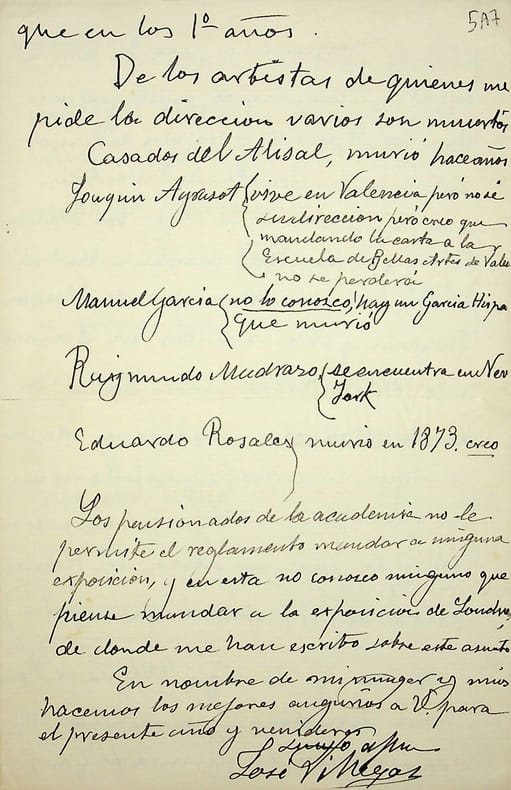 5A7
que en los 1º años.
De los artistas de quienes me
pide la direccion varios son muertos
Casados del Alisal, murió hace años
Joaquin Agrasot vive en Valencia peró no sé
su direccion peró creo que
mandando la carta a la
Escuela de Bellas Artes de Vale
no se perderá
Manuel Garcia no lo conosco, hay un Garcia Hispa
que murió
Raigmundo Madrazo se encuentra en New
York
Eduardo Rosales murió en 1873. creo
Los pensionados de la academia no le
permite el reglamento mandar a ninguna
exposición, y en esta no conosco ninguno que
piense mandar a la exposicion de Londres,
de donde me han escrito sobre este asunto
En nombre de mi muger y mio
hacemos los mejores augurios a V. para
el presente año y venideros
Suyo, affmo
José Villegas